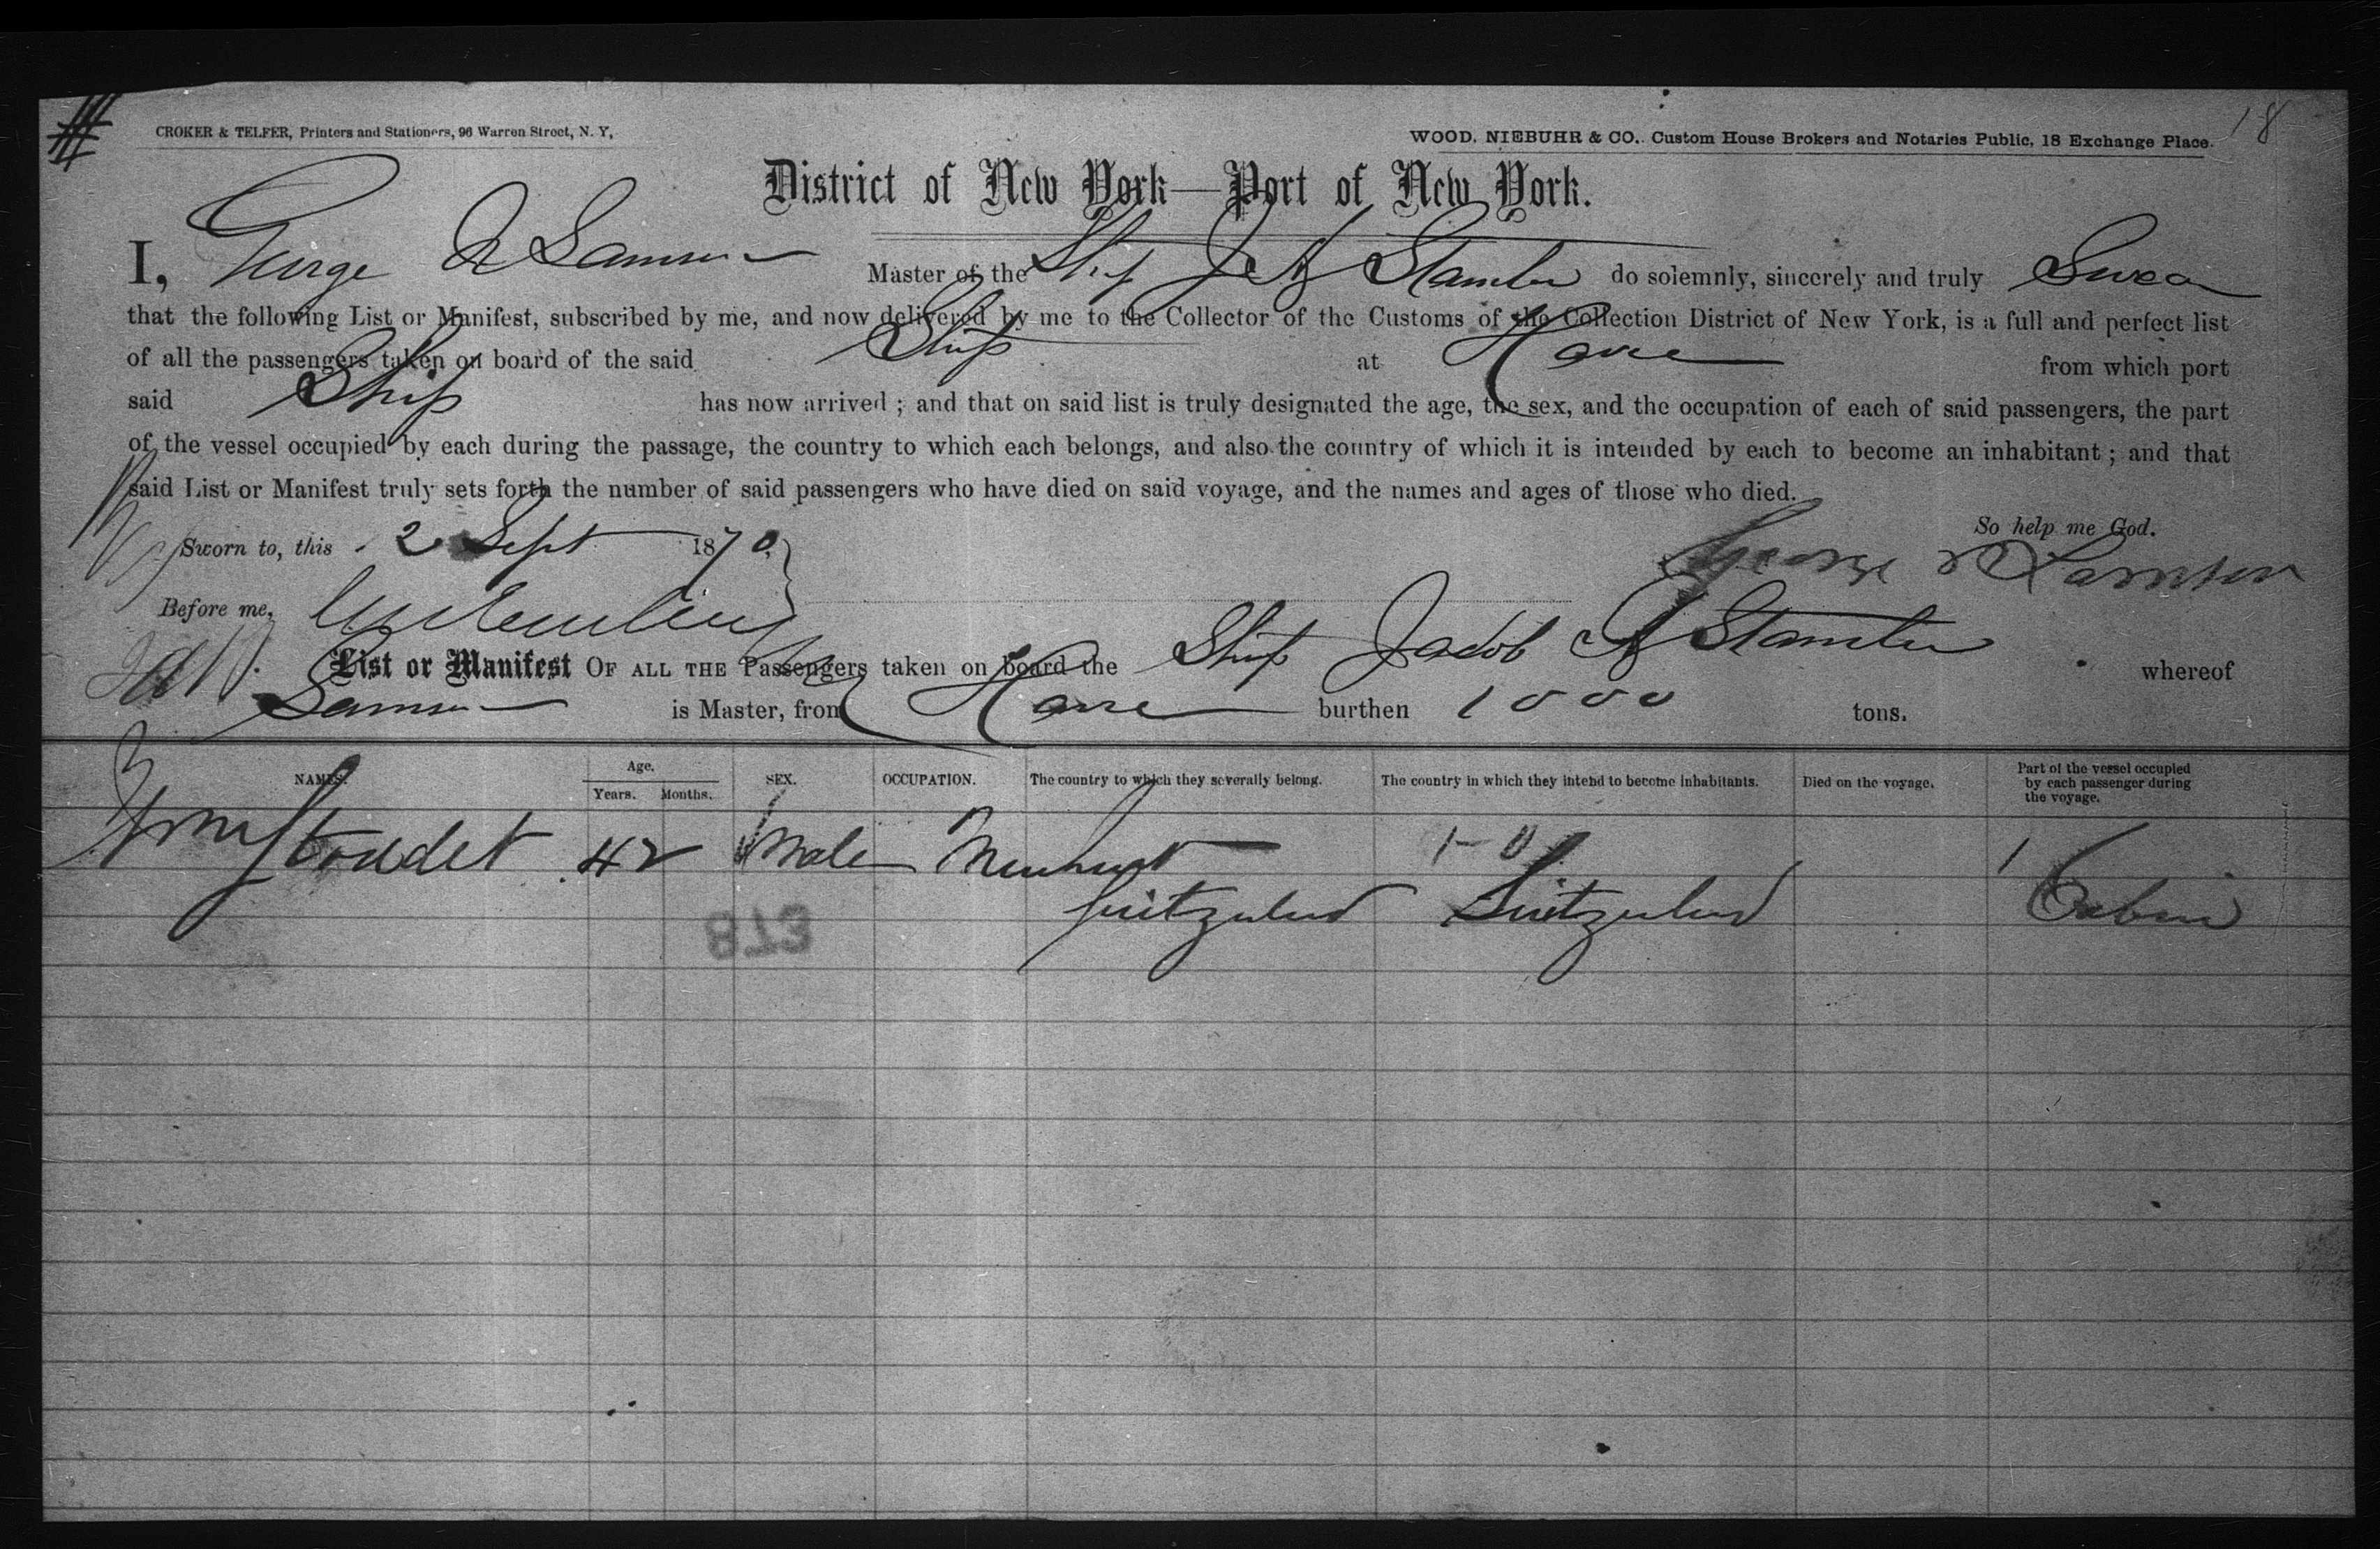 18
CROKER & TELFER, Printers and Stationers, 96 Warren Street, N. Y.
WOOD, NIEBUHR & CO., Custom House Brokers and Notaries Public, 18 Exchange Place.
District of New York—Port of New York.
I, George Lamson Master of the Ship J A Stamler do solemnly, sincerely and truly Swear
that the following List or Manifest, subscribed by me, and now delivered by me to the Collector of the Customs of the Collection District of New York, is a full and perfect list
of all the passengers taken on board of the said Ship at Havre from which port
said Ship has now arrived ; and that on said list is truly designated the age, the sex, and the occupation of each of said passengers, the part
of the vessel occupied by each during the passage, the country to which each belongs, and also the country of which it is intended by each to become an inhabitant ; and that
said List or Manifest truly sets forth the number of said passengers who have died on said voyage, and the names and ages of those who died.
So help me God.
Sworn to, this 2 Sept 1870
George Lamson
Before me,
List or Manifest OF ALL THE Passengers taken on board the Ship Jacob A Stamler whereof
Lamson is Master, from Havre burthen 1000 tons.
NAMES. Age. Years. Months. SEX. OCCUPATION. The country to which they severally belong. The country in which they intend to become inhabitants. Died on the voyage. Part of the vessel occupied by each passenger during the voyage.
42 Male Merchant Switzerland Switzerland Cabin
873